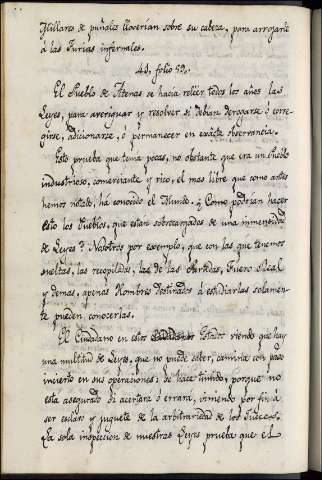 Millares de puñales lloverian sobre su cabeza, para arrojarle
á las Furias infernales.
41, folio 52.
El Pueblo de Atenas se hacia releer todos los años las
Leyes, para averiguar y resolver si debian derogarse ó corre-
girse, adicionarse, ó permanecer en exâcta observancia.
Esto prueba que tenia pocas, no obstante que era un Pueblo
industrioso, comerciante y rico, el mas libre que como antes
hemos notado, há conocido el Mundo. ¿Como podrian hacer
esto los Pueblos, que estan sobrecargados de una inmensidad
de Leyes? Nosotros por exemplo, que con las que tenemos
sueltas, las recopiladas, las de las Partidas, Fuero Real
y demas, apenas Hombres destinados á estudiarlas solamen-
te pueden conocerlas.
El Ciudadano en estos Estados viendo que hay
una multitud de Leyes, que no puede saber, camina con paso
incierto en sus operaciones; se hace timido, porque no
esta asegurado si acertará ó errará, viniendo por fin á
ser esclavo y juguete de la arbitrariedad de los Jueces.
La sola inspeccion de nuestras Leyes prueba que el